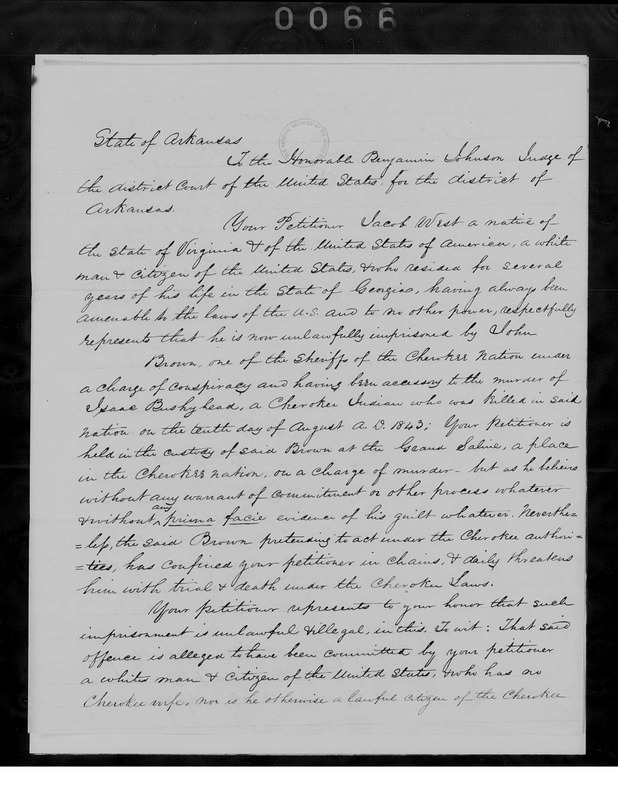 0066
State of Arkansas
To the Honorable Benjamin Johnson Judge of
the district Court of the United States, for the district of
Arkansas.
Your Petitioner Jacob West a native of
the State of Virginia & of the United States of America, a white
man & citizen of the United States, & who resided for several
years of his life in the State of Georgia, having always been
amenable to the laws of the U.S. and to no other power, respectfully
represents that he is now unlawfully imprisoned by John
Brown, one of the Sheriffs of the Cherokee Nation under
a charge of conspiracy and having been accessory to the murder of
Isaac Bushyhead, a Cherokee Indian who was killed in said
Nation on the tenth day of August A.D. 1843: Your Petitioner is
held in the custody of said Brown at the Grand Saline, a place
in the Cherokee nation, on a charge of murder - but as he believes
without any warrant of commitment or other process whatever
& without any prima facie evidence of his guilt whatever. Neverthe=
=less, the said Brown pretending to act under the Cherokee authori=
=ties, has confined your petitioner in chains, & daily threatens
him with trial & death under the Cherokee Laws.
Your Petitioner represents to your honor that such
imprisonment is unlawful & illegal, in this, To wit: That said
offence is alleged to have been committed by your petitioner
a white man & citizen of the United States, & who has no
Cherokee wife, nor is he otherwise a lawful citizen of the Cherokee